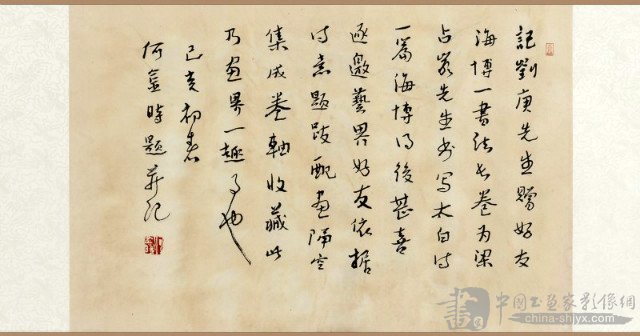 記劉庚先生贈好友
海博一書法长卷为梁
占岩先生书写太白诗
一篇海博得後甚喜
逐邀藝界好友依据
诗意題跋配画隔空
集成卷軸收藏此
乃画界一趣事也
己亥初春
何金時題并记
書
中国书画家影像網
china-shjyx.com